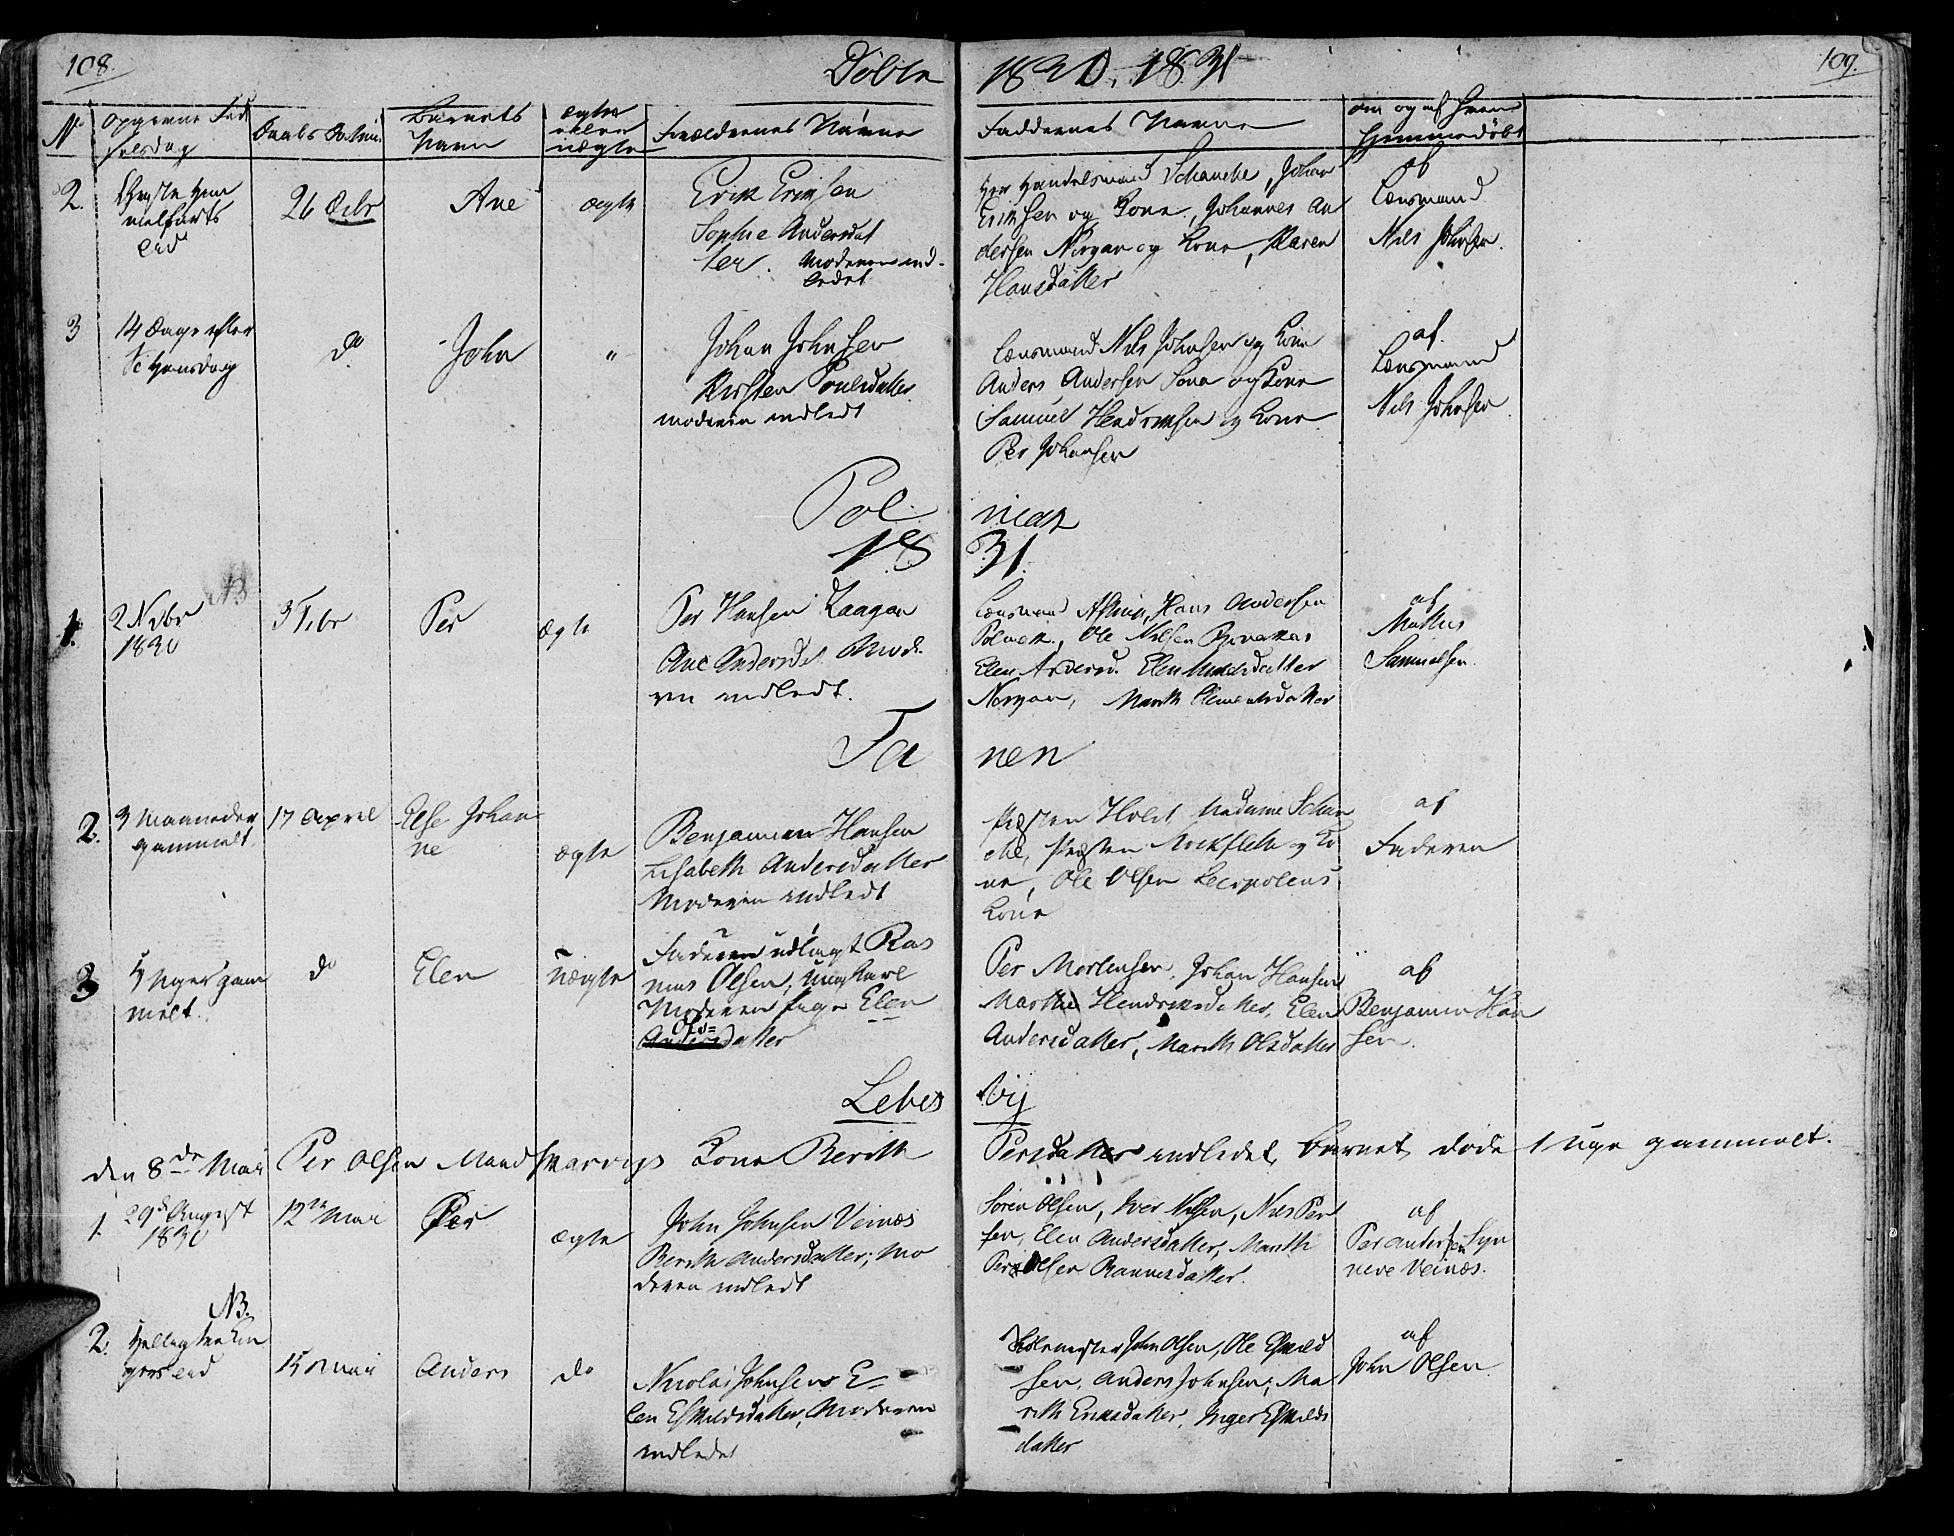 108.
Døbte
1830, 1831
109.
No
Opgivne Fød
selsdag
Daabs Datum
Barnets
Navn
Ægte
eller
uægte
Forældrenes Navne
Faddernes Navne
om og af hvem
hjemmedøbt
2.
26 Octbr
Ane
ægte
Erik Eriksen
Sophie Andersdat
ter. Moderen ind-
ledet
Handelsmand Schanche, Johan
Eriksen og Kone, Johannes An
dersen Norgau og Kone, Maren
Hansdatter
af
Lensmand
Nils Johnsen.
3
14 Dage efter
St Hansdag
do
John
"
Johan Johnsen
Kirsten Poulsdatter
moderen indledt
Lensmand Nils Johnsen og Kone
Anders Andersen Sona og Kone
Samuel Hendriksen og Kone
Per Johansen
af
Lensmand
Nils Johnsen
Pol
mak
18
31.
NB
1.
2 Nvbr
1830
3 Febr
Per
ægte
Per Hansen Laagau
Ane Andersdt. Mode
ren indledt.
Lensmand Hans Andersen
Polmak, Ole Nilsen
Elen Andersd. Elen
Norgau, Marith Clementsdatter
af
Mathis
Samuelsen
Ta
nen
2.
3 Maaneder
gammelt.
17 April
Else Johan
ne
ægte
Benjamin Hansen
Lisabeth Andersdatter
Moderen indledt
Præsten Holst Madame Schan
che, Præsten og Ko
ne, Ole Olsen
Kone
af
Faderen
3
5 Uger gam
melt.
do
Elen
uægte
Faderen udlagt Ras
mus Olsen, Ungkarl
Moderen Pige Elen
Ols=
Andersdatter
Per Mortensen, Johan Hansen
Marthe Hendriksdatter, Elen
Andersdatter, Marith Olsdatter
af
Benjamin Han
sen.
Lebes
bye
den 8de Mai Per Olsen Mand Kone Berith
Persdatter indledet, barnet døde 1 uge gammelt.
1.
29de August
1830
12te Mai
Per
ægte
John Johnsen Veinæs
Berith Andersdatter; Mo
deren indledt
Søren Olsen, Iver Nilsen, Nils Per
sen, Elen Andersdatter, Marith
Olsen Rasmusdatter.
af
Per Andersen Syn
neve Veinæs.
NB.
2.
15 Mai
Anders
do
Nicolai Johnsen E-
len Eskildsdatter, Moderen
indledet
John Olsen, Ole Eskild
sen, Anders Johnsen; Ma
rith Eriksdatter, Inger Eskilds
datter
af
John Olsen